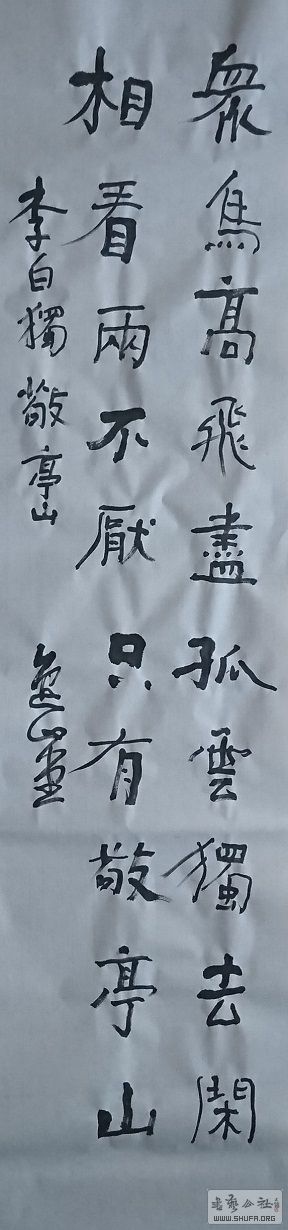 衆鳥高飛盡孤雲獨去閑
相看兩不厭只有敬亭山
李白獨敬亭山
书艺公社
WWW.SHUFA.ORG